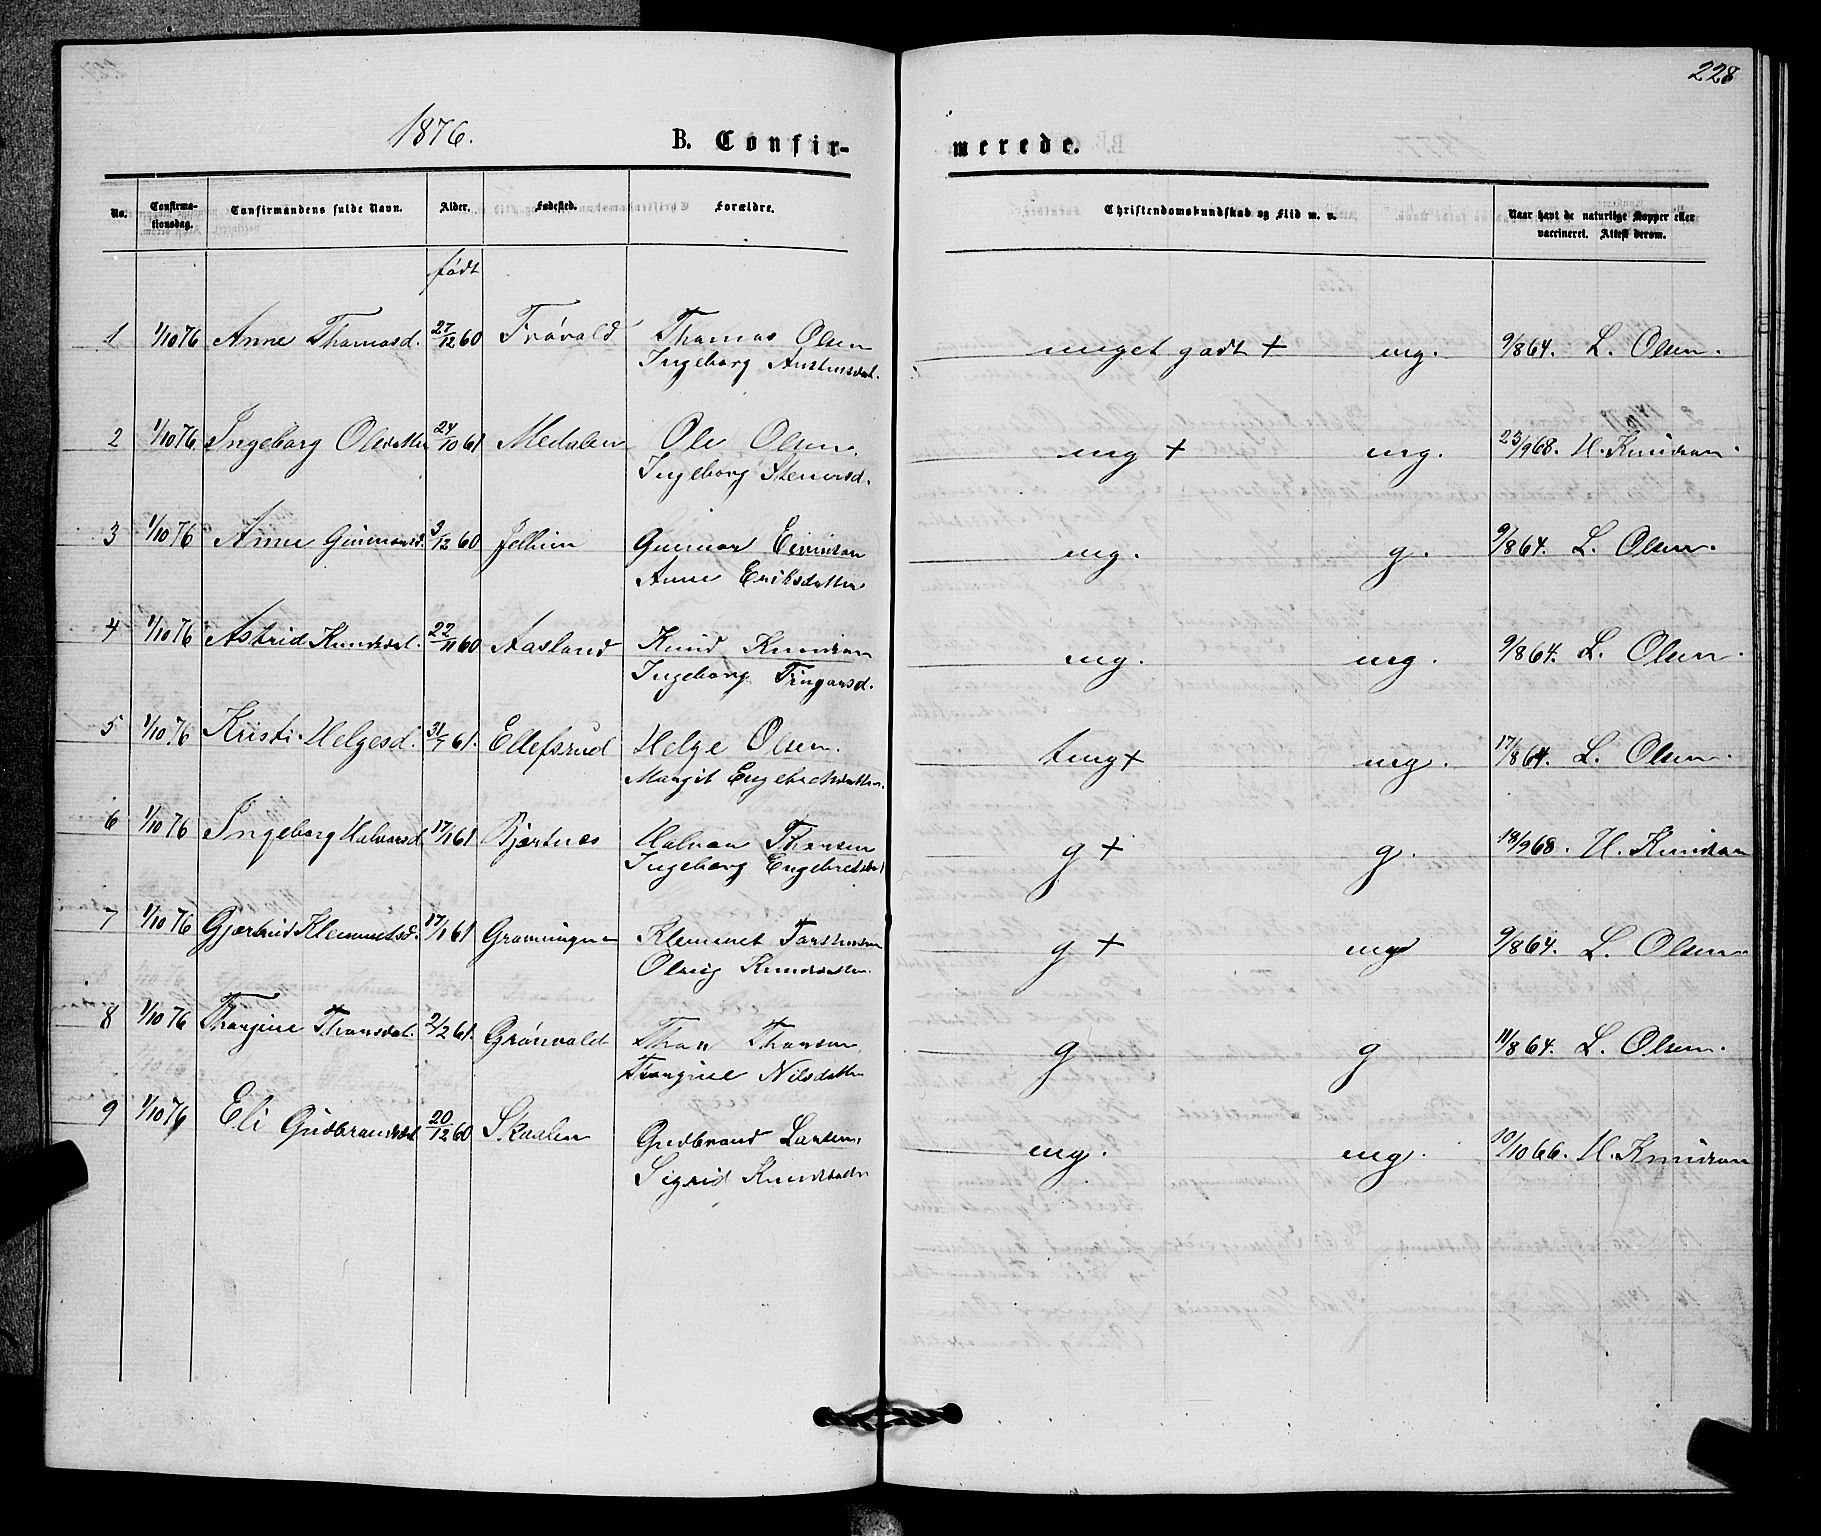 228
1876. B. Confirmerede.
No. Confirmationsdag. Confirmandens fulde Navn. Alder. Fødested. Forældre. Christendomskundskab og Flid m. v. Naar havt de naturlige Kopper eller vaccineret. Attest derom.
født
1 1/10 76 Anne Thomasd. 27/12 60 Trøvold Thomas Olsen meget godt + mg. 9/8 64. L. Olsen.
Ingeborg
2 1/10 76 Ingeborg Olsdatter 24/10 61 Medalen Ole Olsen. mg + mg. 23/9 68. H. Knudson.
Ingeborg Stenersd.
3 1/10 76 Anne Gunnarsd. 3/12 60 Gunnar mg. g. 9/8 64. L. Olsen.
Anne Eriksdatter
4 1/10 76 Astrid Knudsdat. 22/11 60 Aasland Knud Knudson mg. mg. 9/8 64. L. Olsen.
Ingeborg
5 1/10 76 Kristi Helgesd. 31/7 61. Ellefsrud Helge Olsen. tmg + mg. 17/8 64. L. Olsen.
Margit Engebrethsdatter.
6 1/10 76 Ingeborg Halvorsd 17/1 61 Bjertnæs Halvor Thorsen g + g. 18/9 68. H. Knudson
Ingeborg Engebretsdat
7 1/10 76 Gjertrud Klemmetsd. 17/1 61 Klemmet Torstensen g + mg 9/8 64. L. Olsen.
Knudsdatter.
8 1/10 76 Thorgine Thorsdat. 2/2 61. Grønvold Thor Thorsen. g g 11/8 64. L. Olsen.
Thorgine Nilsdatter
9 1/10 76 Eli Gudbrandsdat 20/12 60 Skaalen Gudbrand Larsen. mg. mg. 10/10 66. H. Knudson
Sigrid Knudsdatter